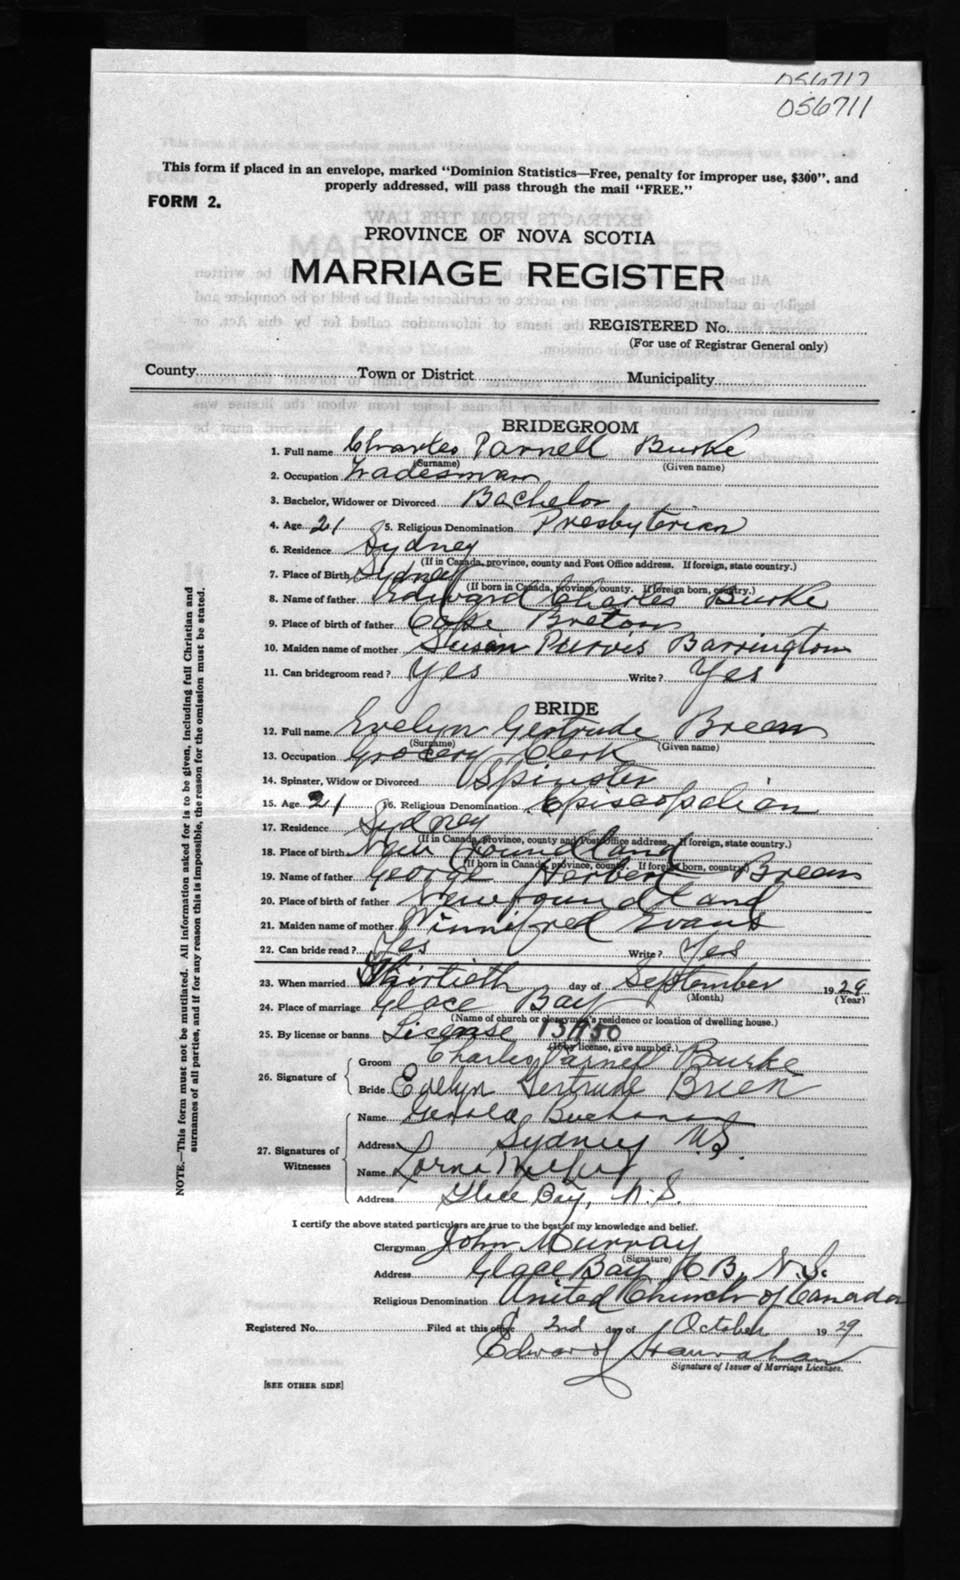 056717
056711
This form if placed in an envelope, marked "Dominion Statistics—Free, penalty for improper use, $300", and
properly addressed, will pass through the mail "FREE."
FORM 2.
PROVINCE OF NOVA SCOTIA
MARRIAGE REGISTER
REGISTERED No.
(For use of Registrar General only)
County Town or District Municipality
BRIDEGROOM
1. Full name Charles Parnell Burke
(Surname) (Given name)
2. Occupation Tradesman
3. Bachelor, Widower or Divorced Bachelor
4. Age 21 5. Religious Denomination Presbyterian
6. Residence Sydney
(If in Canada, province, county and Post Office address. If foreign, state country.)
7. Place of Birth Sydney
(If born in Canada, province, county. If foreign born, country.)
8. Name of father Edward Charles Burke
9. Place of birth of father Cape Breton
10. Maiden name of mother Susan Purvis Barrington
11. Can bridegroom read? Yes Write? Yes
BRIDE
12. Full name Evelyn Gertrude Breen
(Surname) (Given name)
13. Occupation Grocery Clerk
14. Spinster, Widow or Divorced Spinster
15. Age 21 16. Religious Denomination Episcopalian
17. Residence Sydney
(If in Canada, province, county and Post Office address. If foreign, state country.)
18. Place of birth New Foundland
(If born in Canada, province, county. If foreign born, country.)
19. Name of father George Herbert Breen
20. Place of birth of father Newfoundland
21. Maiden name of mother Winnifred Evans
22. Can bride read? Yes Write? Yes
23. When married Thirtieth day of September 1929
(Month) (Year)
24. Place of marriage Glace Bay
(Name of church or clergyman's residence or location of dwelling house.)
25. By license or banns License
(If by license, give number.)
26. Signature of
Groom Charles Parnell Burke
Bride Evelyn Gertrude Brien
27. Signatures of
Witnesses
Name Gerald Buchanan
Address Sydney N.S.
Name Lorna
Address Glace Bay, N.S.
I certify the above stated particulars are true to the best of my knowledge and belief.
Clergyman John Murray
(Signature)
Address Glace Bay C.B. N.S.
Religious Denomination United Church of Canada
Registered No. Filed at this office 2nd day of October 1929
Edward
Signature of Issuer of Marriage Licenses.
[SEE OTHER SIDE]
NOTE.—This form must not be mutilated. All information asked for is to be given, including full Christian and
surnames of all parties, and if for any reason this is impossible, the reason for the omission must be stated.